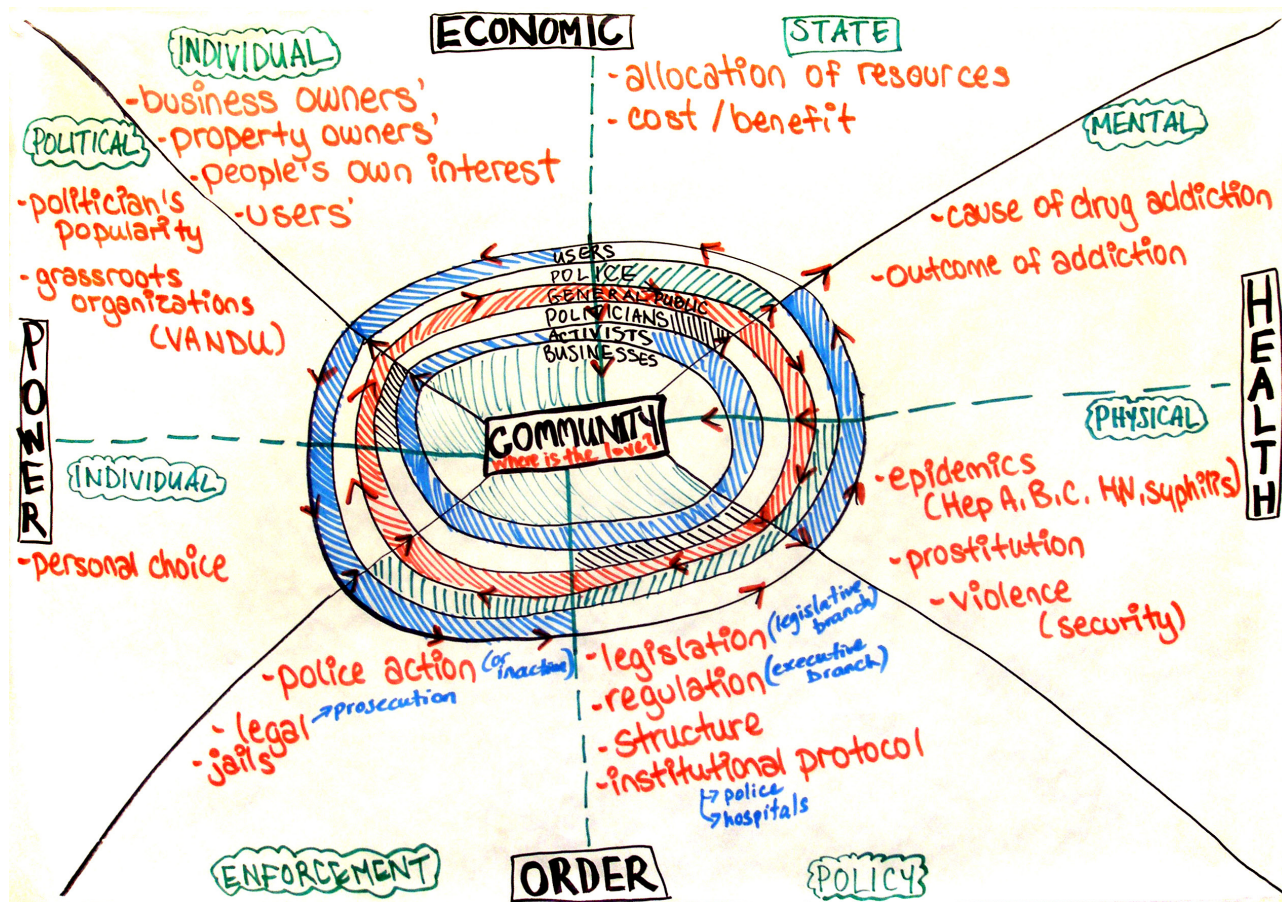 ECONOMIC
INDIVIDUAL
-business owners'
-property owners'
-people's own interest
-users'
STATE
-allocation of resources
-cost/benefit
POLITICAL
-politician's
popularity
-grassroots
organizations
(VANDU)
POWER
INDIVIDUAL
-personal choice
MENTAL
-cause of drug addiction
-outcome of addiction
HEALTH
PHYSICAL
-epidemics
(Hep A, B, C, HIV, syphilis)
-prostitution
-violence
(security)
USERS
POLICE
GENERAL PUBLIC
POLITICIANS
ACTIVISTS
BUSINESSES
COMMUNITY
Where is the love?
-police action (or
inactive)
-legal → prosecution
-jails
ENFORCEMENT
ORDER
-legislation (legislative
branch)
-regulation (executive
branch)
-structure
-institutional protocol
→ police
→ hospitals
POLICY